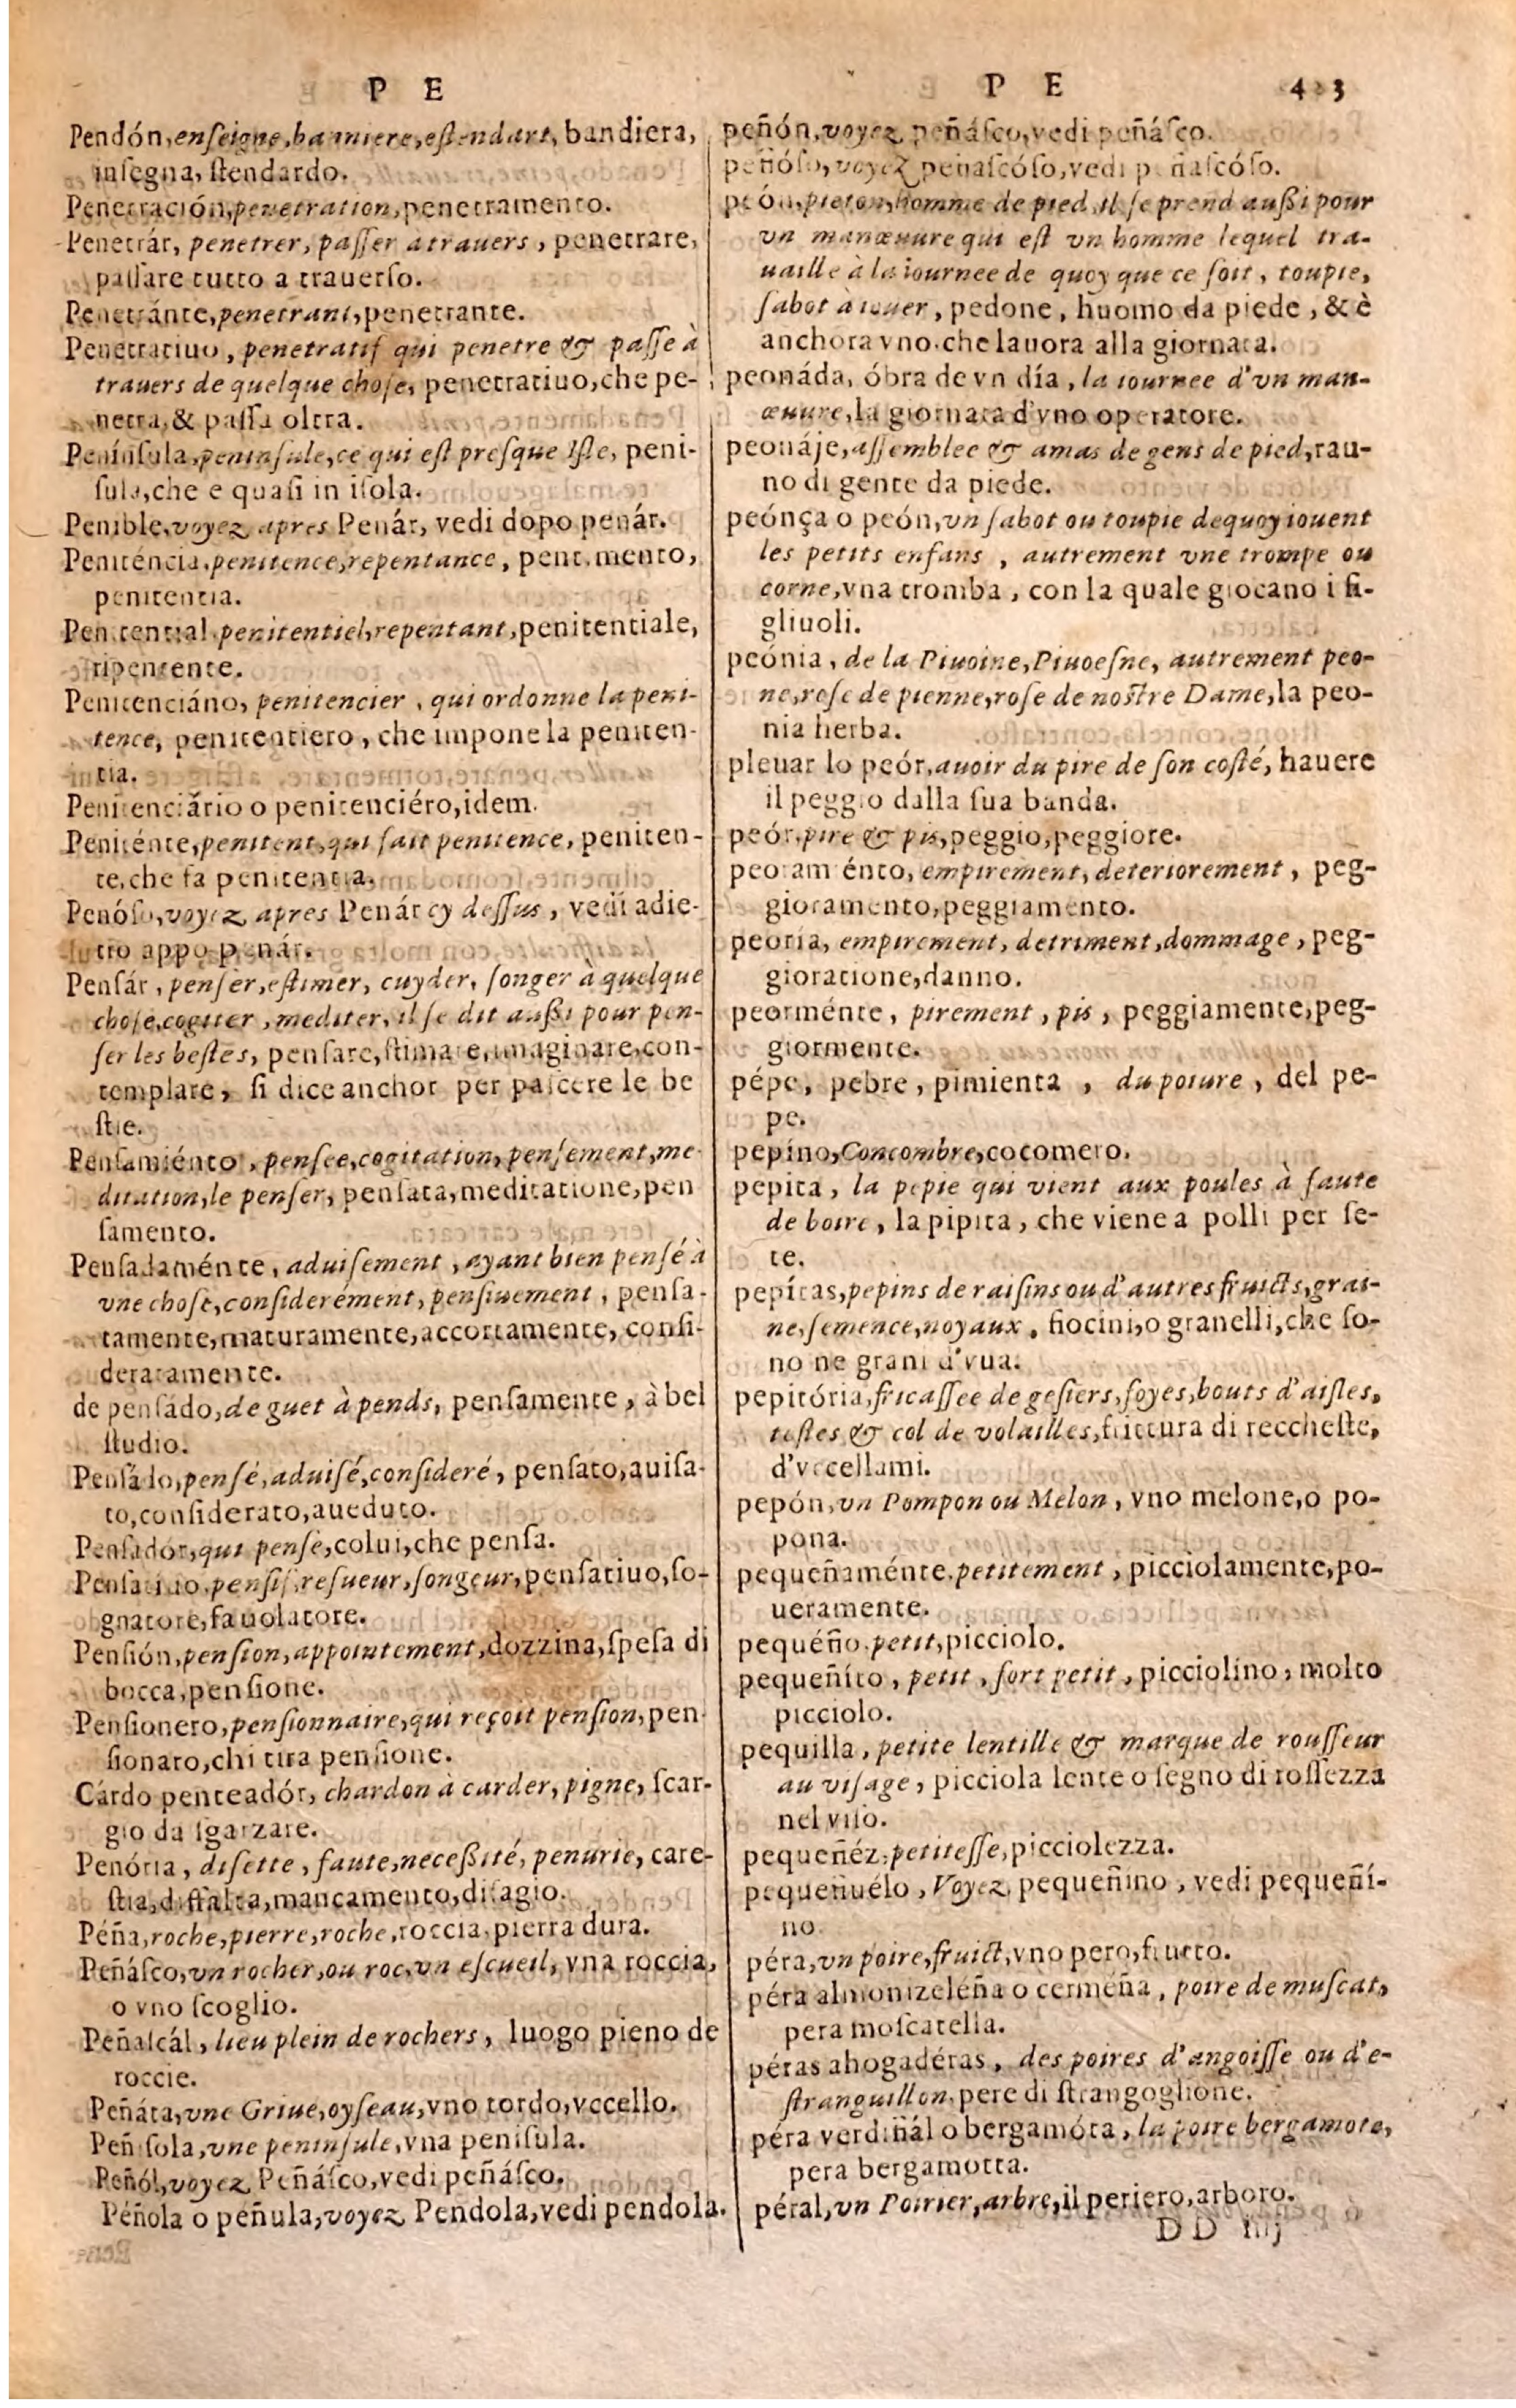 P E
Pendón, enſeigne, banniere, eſtendart, bandiera,
inſegna, ſtendardo.
Penetración, penetration, penetramento.
Penetrár, penetrer, paſſer a trauers, penetrare,
paſſare tutto a trauerſo.
Penetránte, penetrant, penetrante.
Penetratiuo, penetratif qui penetre & paſſe à
trauers de quelque choſe, penetratiuo, che pe-
netra, & paſſa oltra.
Península, peninſule, ce qui eſt preſque Iſle, peni-
ſula, che e quaſi in iſola.
Penible, voyez apres Penár, vedi dopo penár.
Peniténcia, penitence, repentance, pentimento,
penitentia.
Penitential, penitentiel, repentant, penitentiale,
ripentente.
Penitenciáno, penitencier, qui ordonne la peni-
tence, penitentiero, che impone la peniten-
tia.
Penitenciário o penitenciéro, idem.
Peniténte, penitent, qui fait penitence, peniten-
te, che fa penitentia.
Penóſo, voyez apres Penár cy deſſus, vedi adie-
tro appo penár.
Penſár, penſer, eſtimer, cuyder, ſonger à quelque
choſe, cogiter, mediter, il ſe dit auſſi pour pen-
ſer les beſtes, penſare, ſtimare, imaginare, con-
templare, ſi dice anchor per paſcere le be
ſtie.
Penſamiénto, penſee, cogitation, penſement, me-
ditation, le penſer, penſata, meditatione, pen
ſamento.
Penſadaménte, aduiſement, ayant bien penſé à
vne choſe, conſiderément, penſiuement, penſa-
tamente, maturamente, accortamente, conſi-
deratamente.
de penſádo, de guet à pends, penſamente, à bel
ſtudio.
Penſádo, penſé, aduiſé, conſideré, penſato, auiſa-
to, conſiderato, aueduto.
Penſadór, qui penſe, colui, che penſa.
Penſatiuo, penſif, reſueur, ſongeur, penſatiuo, ſo-
gnatore, fauolatore.
Penſión, penſion, appointement, dozzina, ſpeſa di
bocca, penſione.
Penſionero, penſionnaire, qui reçoit penſion, pen-
ſionaro, chi tira penſione.
Cárdo penteadór, chardon à carder, pigne, ſcar-
gio da ſgarzare.
Penória, diſette, faute, neceſſité, penurie, care-
ſtia, diffalta, mancamento, diſagio.
Péña, roche, pierre, roche, roccia, pierra dura.
Peñáſco, vn rocher, ou roc, vn eſcueil, vna roccia,
o vno ſcoglio.
Peñaſcál, lieu plein de rochers, luogo pieno de
roccie.
Peñáta, vne Griue, oyſeau, vno tordo, vccello.
Peñiſola, vne peninſule, vna peniſula.
Peñól, voyez Peñáſco, vedi peñáſco.
Péñola o peñula, voyez Pendola, vedi pendola.
P E 423
peñón, voyez peñáſco, vedi peñáſco.
peñóſo, voyez peñaſcóſo, vedi peñaſcóſo.
peón, pieton, homme de pied, il ſe prend auſſi pour
vn manœuure qui eſt vn homme lequel tra-
uaille à la iournee de quoy que ce ſoit, toupie,
ſabot à iouer, pedone, huomo da piede, & è
anchora vno che lauora alla giornata.
peonáda, óbra de vn día, la iournee d'vn man-
œuure, la giornata d'vno operatore.
peonáje, aſſemblee & amas de gens de pied, rau-
no di gente da piede.
peónça o peón, vn ſabot ou toupie dequoy iouent
les petits enfans, autrement vne trompe ou
corne, vna tromba, con la quale giocano i fi-
gliuoli.
peónia, de la Piuoine, Piuoeſne, autrement peo-
ne, roſe de pienne, roſe de noſtre Dame, la peo-
nia herba.
pleuar lo peór, auoir du pire de ſon coſté, hauere
il peggio dalla ſua banda.
peór, pire & pis, peggio, peggiore.
peoramiénto, empirement, deteriorement, peg-
gioramento, peggiamento.
peoria, empirement, detriment, dommage, peg-
gioratione, danno.
peorménte, pirement, pis, peggiamente, peg-
giormente.
pépe, pebre, pimienta, du poiure, del pe-
pe.
pepíno, Concombre, cocomero.
pepita, la pepie qui vient aux poules à faute
de boire, la pipita, che viene a polli per ſe-
te.
pepítas, pepins de raiſins ou d'autres fruicts, grai-
ne, ſemence, noyaux, fiocini, o granelli, che ſo-
no ne grani d'vua.
pepitória, fricaſſee de geſiers, foyes, bouts d'aiſles,
teſtes & col de volailles, frittura di reccheſte,
d'vccellami.
pepón, vn Pompon ou Melon, vno melone, o po-
pona.
pequeñaménte, petitement, picciolamente, po-
ueramente.
pequéño, petit, picciolo.
pequeñíto, petit, fort petit, picciolino, molto
picciolo.
pequilla, petite lentille & marque de rouſſeur
au viſage, picciola lente o ſegno di roſſezza
nel viſo.
pequeñéz, petiteſſe, picciolezza.
pequeñuélo, Voyez pequeñino, vedi pequeñí-
no.
péra, vn poire, fruict, vno pero, frutto.
péra almonizeléña o cerméña, poire de muſcat,
pera moſcatella.
péras ahogadéras, des poires d'angoiſſe ou d'e-
ſtranguillon, pere di ſtrangoglione.
péra verdiñál o bergamóta, la poire bergamote,
pera bergamotta.
péral, vn Poirier, arbre, il periero, arboro.
D D iiij